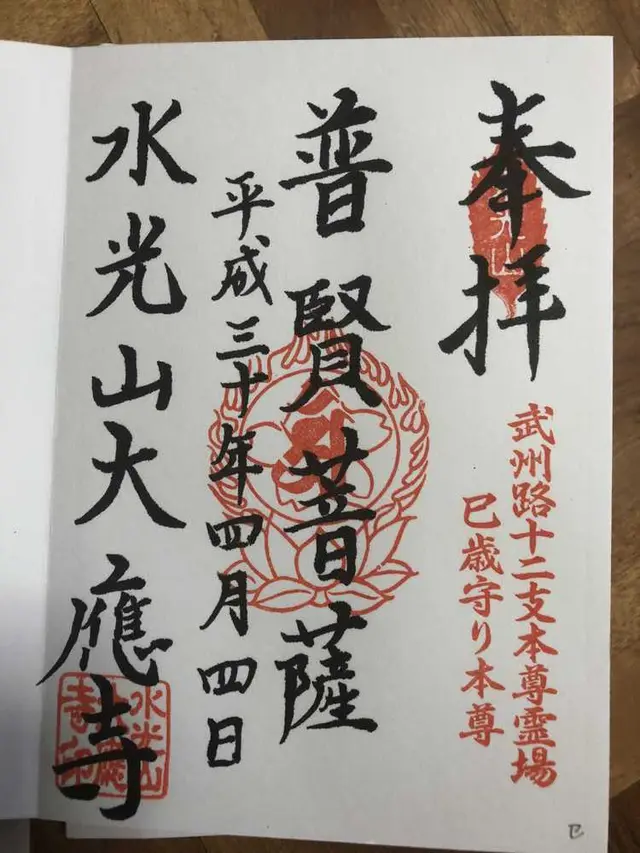 奉拝
武州路十二支本尊霊場
巳歳守り本尊
普賢菩薩
平成三十年四月四日
水光山大應寺
巳